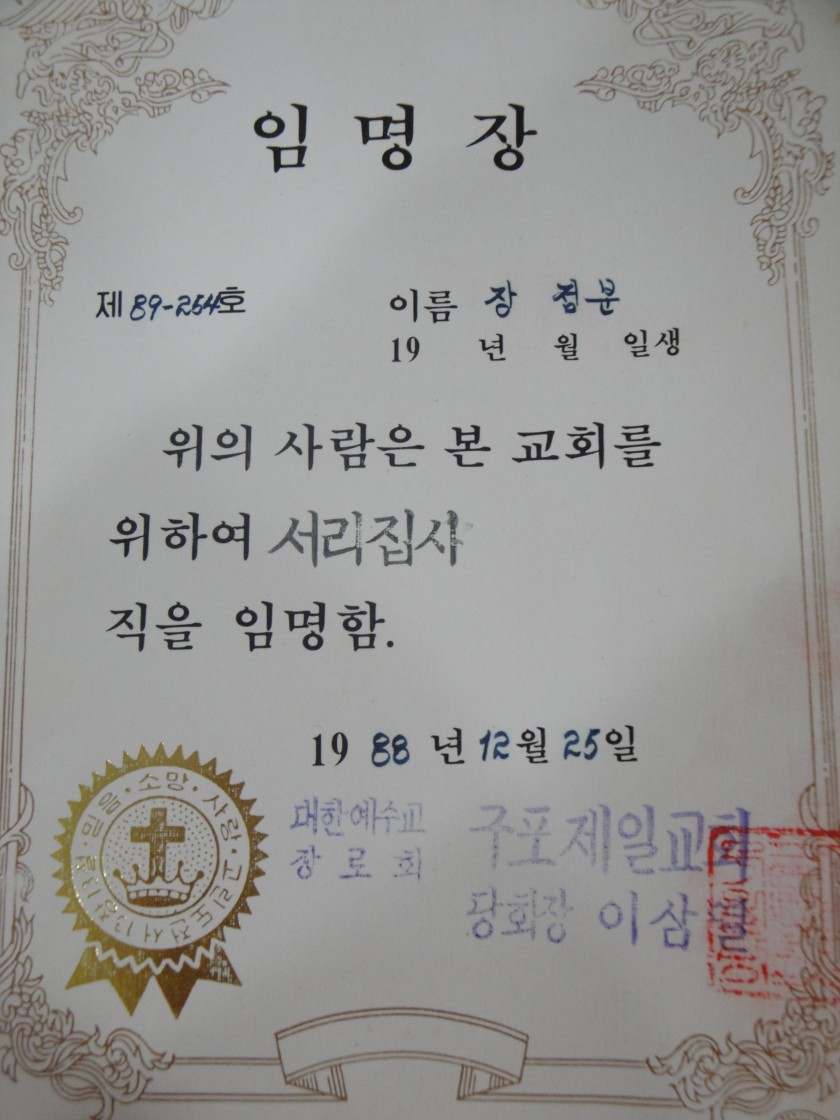 임명장
제 89-254호
이름 장 점분
19 년 월 일생
위의 사람은 본 교회를
위하여 서리집사
직을 임명함.
19 88 년 12월 25일
믿음·소망·사랑·고린도전서13장13절
대한예수교
장로회
구포제일교회
당회장 이삼열